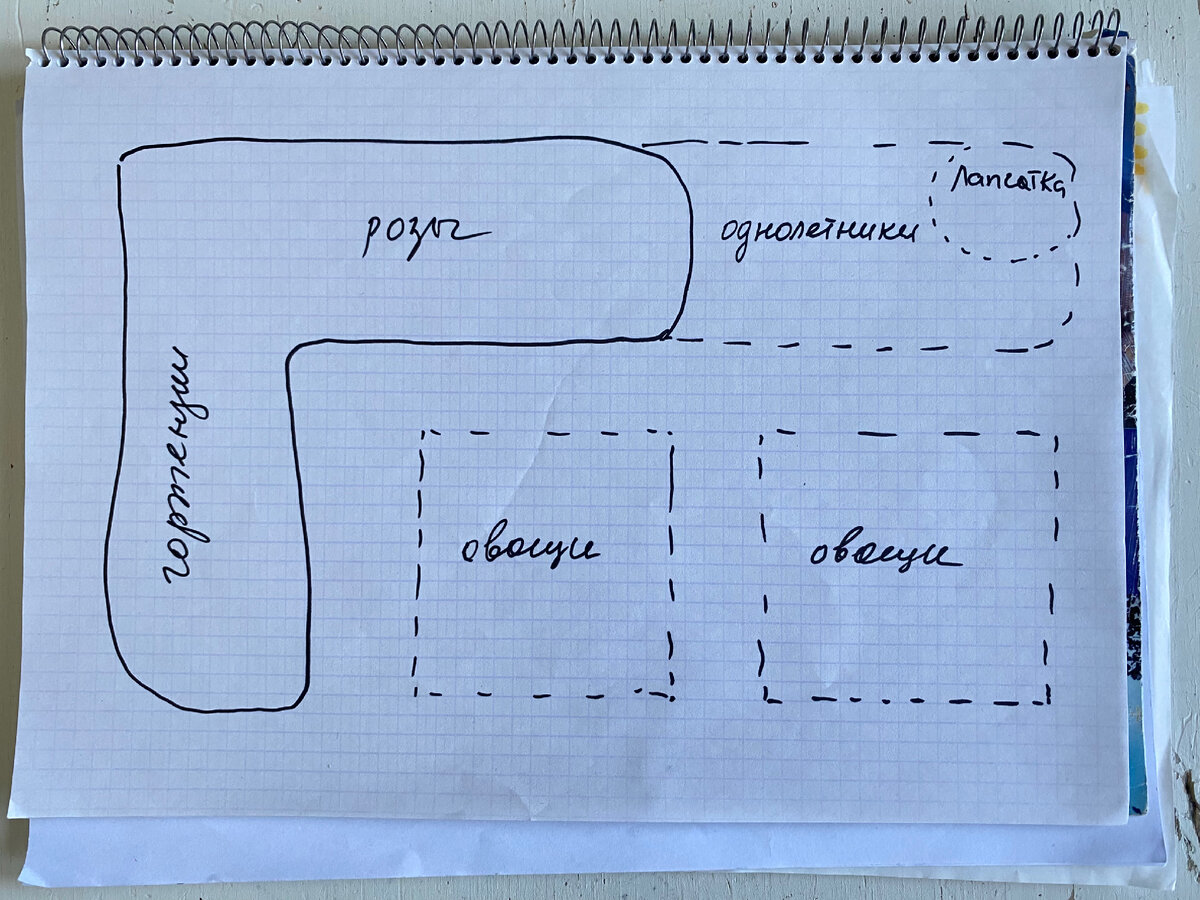 розы
однолетники
Лапчатка
гортензии
овощи
овощи